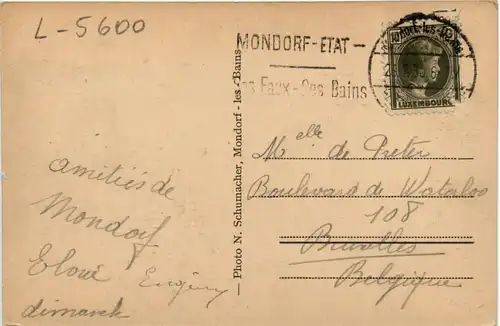 L-5600
MONDORF-ETAT-
Ses Eaux-Ses Bains
MONDORF-les-BAINS
LUXEMBOURG
Photo N. Schumacher, Mondorf-les-Bains
Amitiés de
Mondorf
Eugény
dimanch
Melle de Preter
Boulevard de Waterloo
108
Bruxelles
Belgique